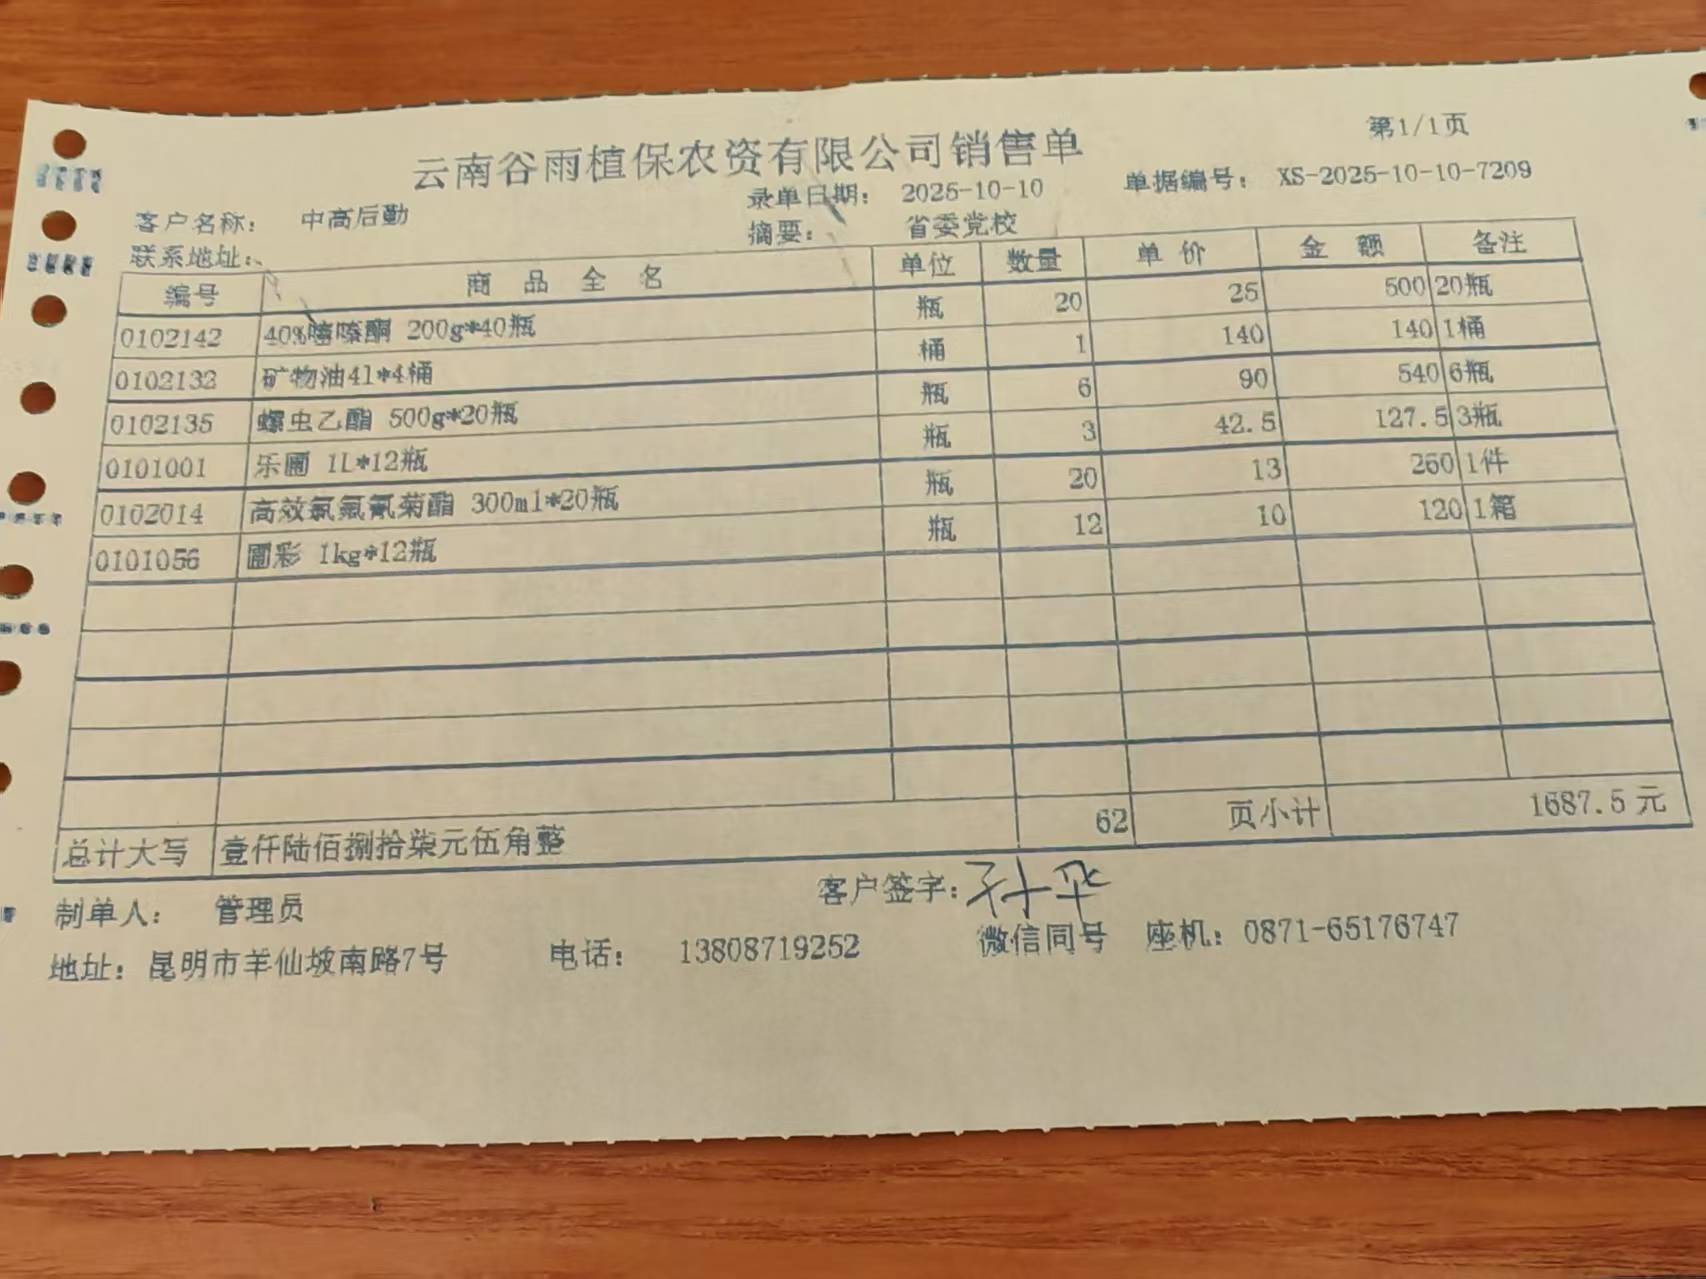 第1/1页
云南谷雨植保农资有限公司销售单
客户名称： 中高后勤 录单日期： 2025-10-10 单据编号： XS-2025-10-10-7209
联系地址： 摘要： 省委党校
编号 商品全名 单位 数量 单价 金额 备注
0102142 40%噻嗪酮 200g*40瓶 瓶 20 25 500 20瓶
0102132 矿物油4l*4桶 桶 1 140 140 1桶
0102135 螺虫乙酯 500g*20瓶 瓶 6 90 540 6瓶
0101001 乐圃 1L*12瓶 瓶 3 42.5 127.5 3瓶
0102014 高效氯氟氰菊酯 300ml*20瓶 瓶 20 13 260 1件
0101056 圃彩 1kg*12瓶 瓶 12 10 120 1箱
总计大写 壹仟陆佰捌拾柒元伍角整 62 页小计 1687.5 元
制单人： 管理员 客户签字：孙华
地址：昆明市羊仙坡南路7号 电话： 13808719252 微信同号 座机：0871-65176747